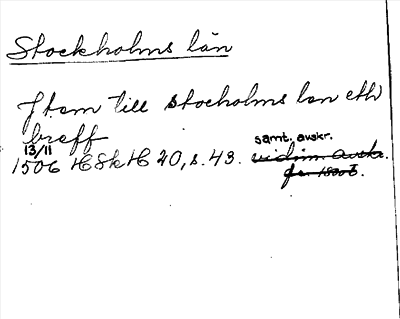 Stockholms län
Jtem till stocholms lan eth
breff
13/11 samt. avskr.
1506 HSkH 20, s. 43. vidim. avskr.
fr. 1500 t.